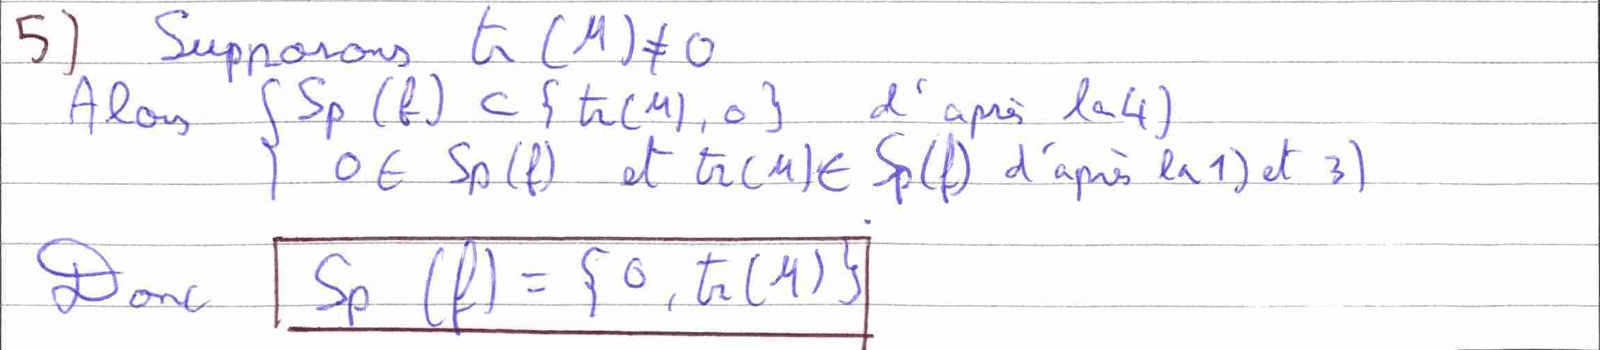 5) Supposons tr(M)≠0
Alors { Sp(f) ⊂ {tr(M), 0} d'après la 4)
0 ∈ Sp(f) et tr(M) ∈ Sp(f) d'après la 1) et 3)
Donc Sp(f) = {0, tr(M)}